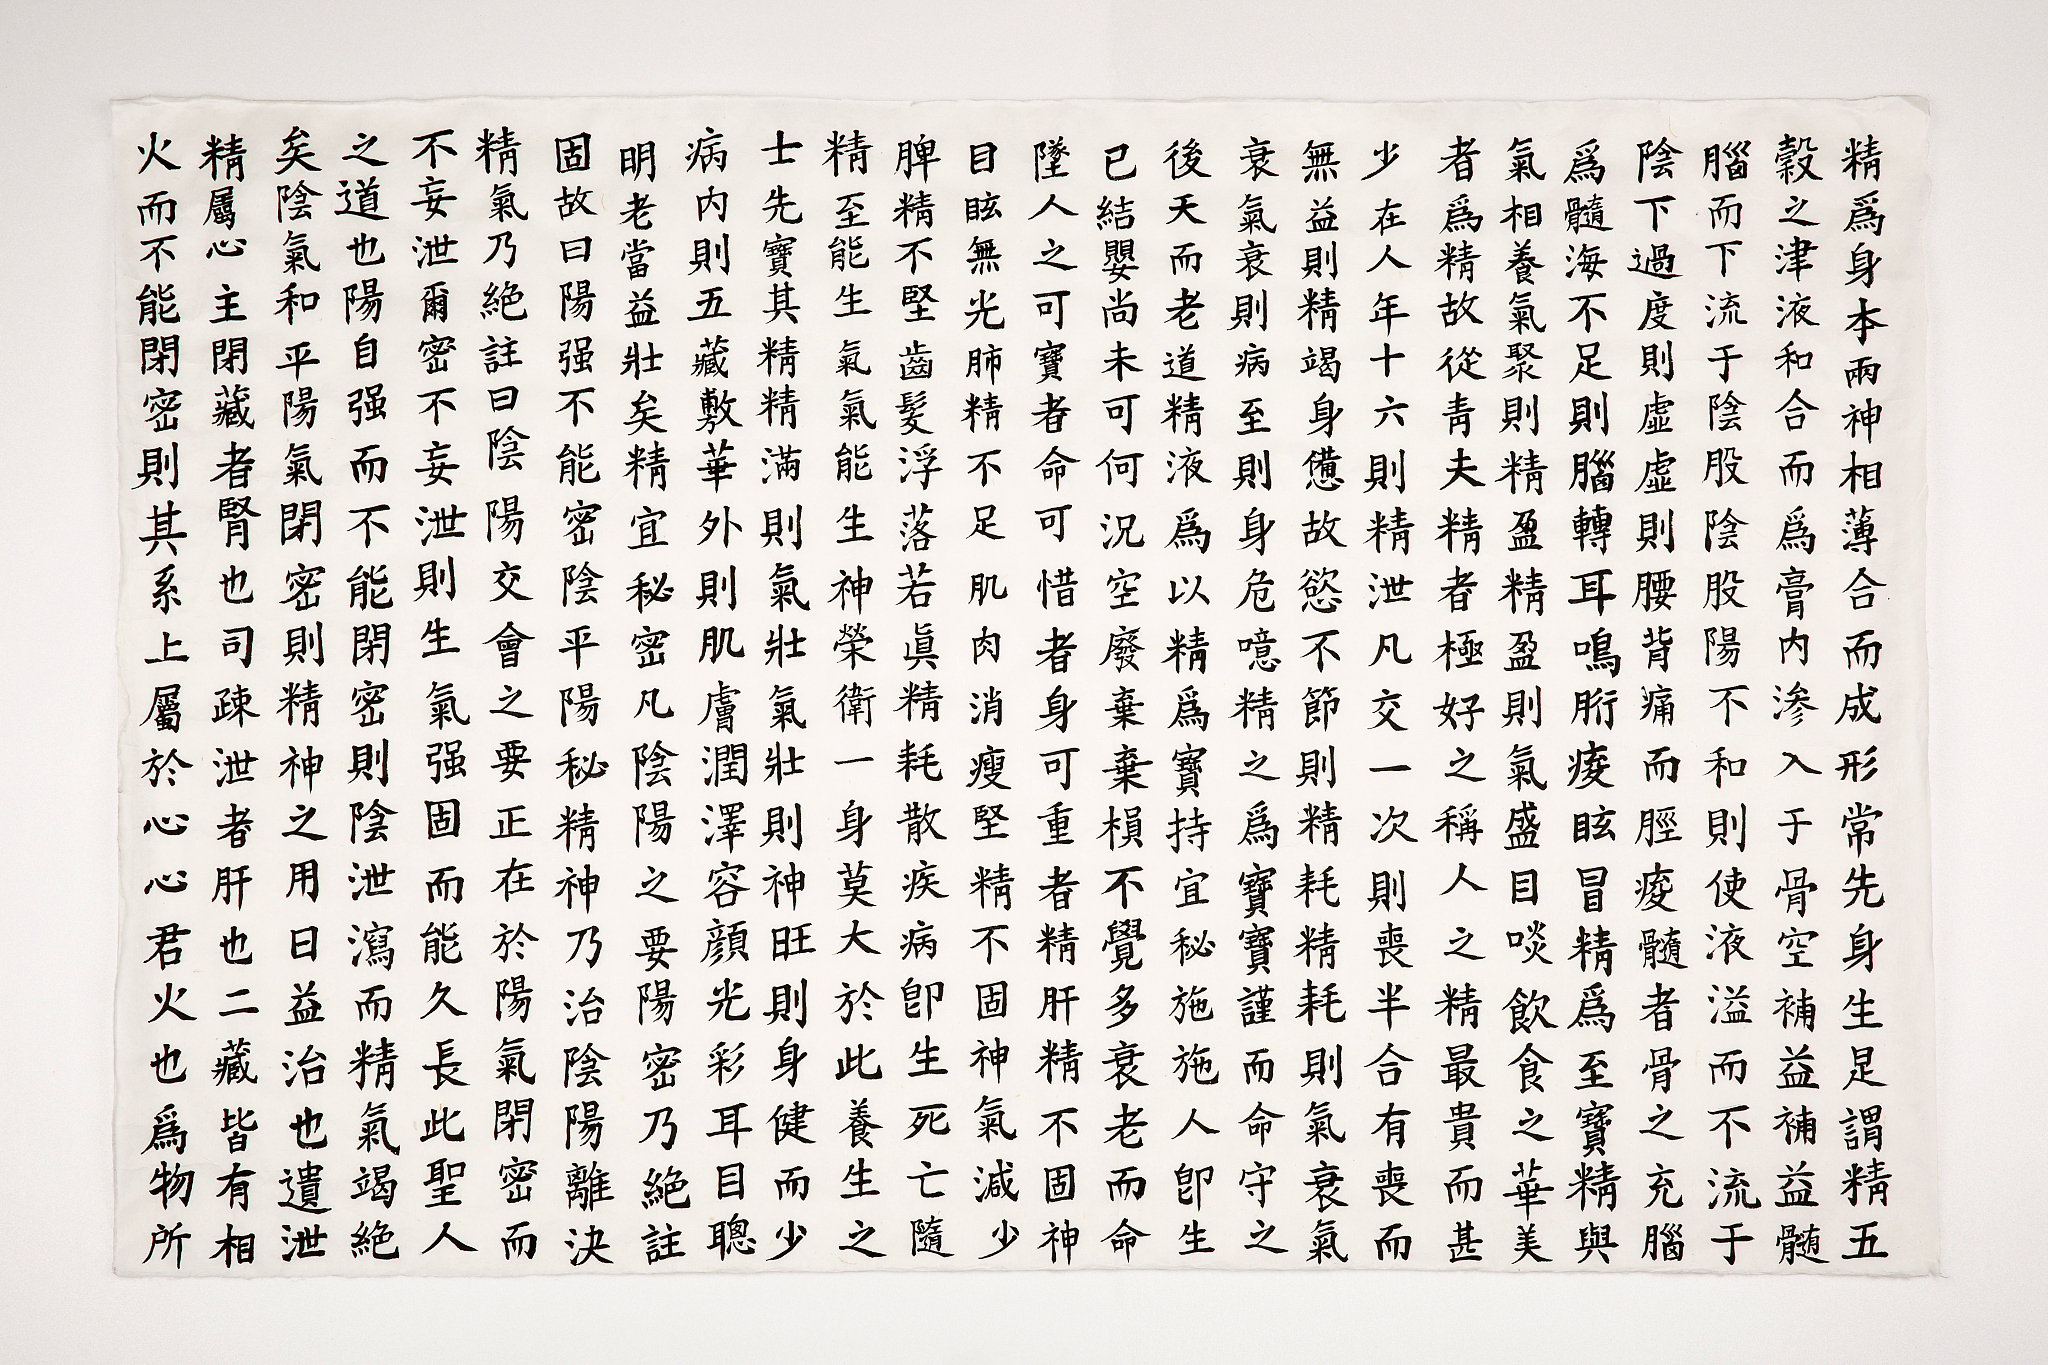 精爲身本兩神相薄合而成形常先身生是謂精五
穀之津液和合而爲膏内滲入于骨空補益補益髓
腦而下流于陰股陰股陽不和則使液溢而不流于
陰下過度則虛虛則腰背痛而脛痠髓者骨之充腦
爲髓海不足則腦轉耳鳴胻痠眩冒精爲至寶精與
氣相養氣聚則精盈精盈則氣盛目啖飲食之華美
者爲精故從靑夫精者極好之稱人之精最貴而甚
少在人年十六則精泄凡交一次則喪半合有喪而
無益則精竭身憊故慾不節則精耗精耗則氣衰氣
衰氣衰則病至則身危噫精之爲寶寶謹而命守之
後天而老道精液爲以精爲寶持宜秘施施人卽生
已結嬰尚未可何況空廢棄棄損不覺多衰老而命
墜人之可寶者命可惜者身可重者精肝精不固神
目眩無光肺精不足肌肉消瘦堅精不固神氣減少
脾精不堅齒髮浮落若眞精耗散疾病卽生死亡隨
精至能生氣氣能生神榮衛一身莫大於此養生之
士先寶其精精滿則氣壯氣壯則神旺則身健而少
病内則五藏敷華外則肌膚潤澤容顔光彩耳目聰
明老當益壯矣精宜秘密凡陰陽之要陽密乃絶註
固故曰陽强不能密陰平陽秘精神乃治陰陽離決
精氣乃絶註曰陰陽交會之要正在於陽氣閉密而
不妄泄爾密不妄泄則生氣强固而能久長此聖人
之道也陽自强而不能閉密則陰泄瀉而精氣竭絶
矣陰氣和平陽氣閉密則精神之用日益治也遺泄
精屬心主閉藏者腎也司疎泄者肝也二藏皆有相
火而不能閉密則其系上屬於心心君火也爲物所